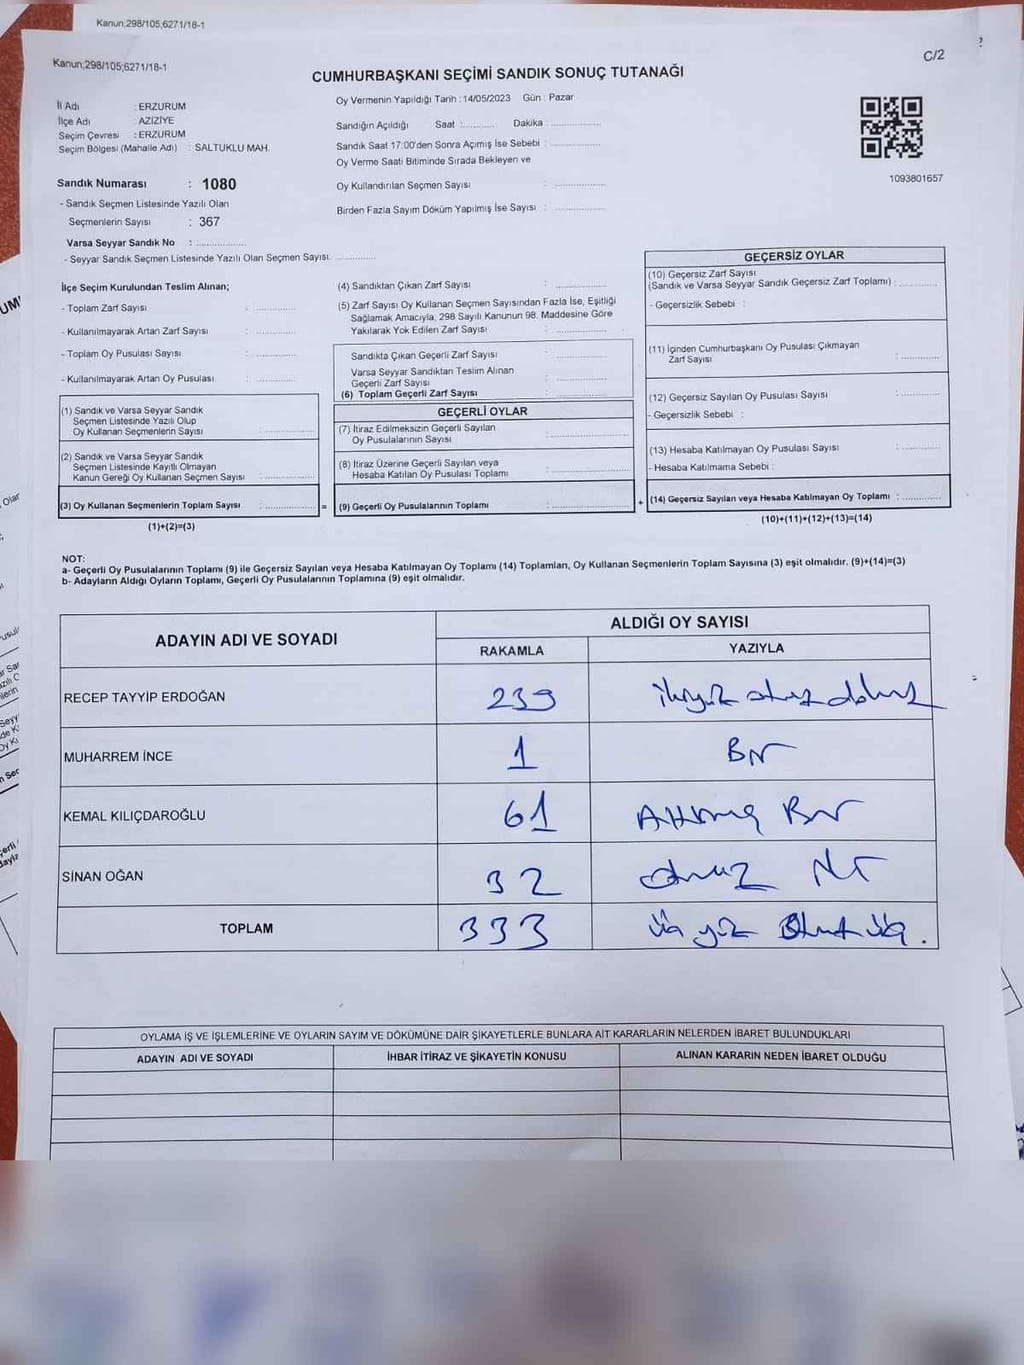 Kanun;298/105;6271/18-1
Kanun;298/105;6271/18-1
C/2
CUMHURBAŞKANI SEÇİMİ SANDIK SONUÇ TUTANAĞI
İl Adı : ERZURUM
İlçe Adı : AZİZİYE
Seçim Çevresi : ERZURUM
Seçim Bölgesi (Mahalle Adı) : SALTUKLU MAH.
Sandık Numarası : 1080
- Sandık Seçmen Listesinde Yazılı Olan
Seçmenlerin Sayısı : 367
Varsa Seyyar Sandık No : ................
- Seyyar Sandık Seçmen Listesinde Yazılı Olan Seçmen Sayısı: .............
Oy Vermenin Yapıldığı Tarih : 14/05/2023 Gün : Pazar
Sandığın Açıldığı Saat :........... Dakika : ................
Sandık Saat 17:00'den Sonra Açımış İse Sebebi : ................
Oy Verme Saati Bitiminde Sırada Bekleyen ve
Oy Kullandırılan Seçmen Sayısı : ................
Birden Fazla Sayım Döküm Yapılmış İse Sayısı : ................
1093801657
İlçe Seçim Kurulundan Teslim Alınan;
- Toplam Zarf Sayısı : .............
- Kullanılmayarak Artan Zarf Sayısı : .............
- Toplam Oy Pusulası Sayısı : .............
- Kullanılmayarak Artan Oy Pusulası : .............
(1) Sandık ve Varsa Seyyar Sandık
Seçmen Listesinde Yazılı Olup
Oy Kullanan Seçmenlerin Sayısı : .............
(2) Sandık ve Varsa Seyyar Sandık
Seçmen Listesinde Kayıtlı Olmayan
Kanun Gereği Oy Kullanan Seçmen Sayısı : .............
(3) Oy Kullanan Seçmenlerin Toplam Sayısı : .............
(1)+(2)=(3)
=
(4) Sandıktan Çıkan Zarf Sayısı : .............
(5) Zarf Sayısı Oy Kullanan Seçmen Sayısından Fazla İse, Eşitliği
Sağlamak Amacıyla; 298 Sayılı Kanunun 98. Maddesine Göre
Yakılarak Yok Edilen Zarf Sayısı : .............
Sandıkta Çıkan Geçerli Zarf Sayısı : .............
Varsa Seyyar Sandıktan Teslim Alınan
Geçerli Zarf Sayısı : .............
(6) Toplam Geçerli Zarf Sayısı : .............
GEÇERLİ OYLAR
(7) İtiraz Edilmeksizin Geçerli Sayılan
Oy Pusulalarının Sayısı : .............
(8) İtiraz Üzerine Geçerli Sayılan veya
Hesaba Katılan Oy Pusulası Toplamı : .............
(9) Geçerli Oy Pusulalarının Toplamı : .............
+
GEÇERSİZ OYLAR
(10) Geçersiz Zarf Sayısı
(Sandık ve Varsa Seyyar Sandık Geçersiz Zarf Toplamı) : .............
- Geçersizlik Sebebi :
(11) İçinden Cumhurbaşkanı Oy Pusulası Çıkmayan
Zarf Sayısı : .............
(12) Geçersiz Sayılan Oy Pusulası Sayısı : .............
- Geçersizlik Sebebi :
(13) Hesaba Katılmayan Oy Pusulası Sayısı : .............
- Hesaba Katılmama Sebebi :
(14) Geçersiz Sayılan veya Hesaba Katılmayan Oy Toplamı : .............
(10)+(11)+(12)+(13)=(14)
NOT:
a- Geçerli Oy Pusulalarının Toplamı (9) ile Geçersiz Sayılan veya Hesaba Katılmayan Oy Toplamı (14) Toplamları, Oy Kullanan Seçmenlerin Toplam Sayısına (3) eşit olmalıdır. (9)+(14)=(3)
b- Adayların Aldığı Oyların Toplamı, Geçerli Oy Pusulalarının Toplamına (9) eşit olmalıdır.
ADAYIN ADI VE SOYADI ALDIĞI OY SAYISI
RAKAMLA YAZIYLA
RECEP TAYYİP ERDOĞAN 239 ikiyüz otuz dokuz
MUHARREM İNCE 1 Bir
KEMAL KILIÇDAROĞLU 61 Altmış Bir
SİNAN OĞAN 32 otuz iki
TOPLAM 333 üç yüz Otuz üç.
OYLAMA İŞ VE İŞLEMLERİNE VE OYLARIN SAYIM VE DÖKÜMÜNE DAİR ŞİKAYETLERLE BUNLARA AİT KARARLARIN NELERDEN İBARET BULUNDUKLARI
ADAYIN ADI VE SOYADI İHBAR İTİRAZ VE ŞİKAYETİN KONUSU ALINAN KARARIN NEDEN İBARET OLDUĞU